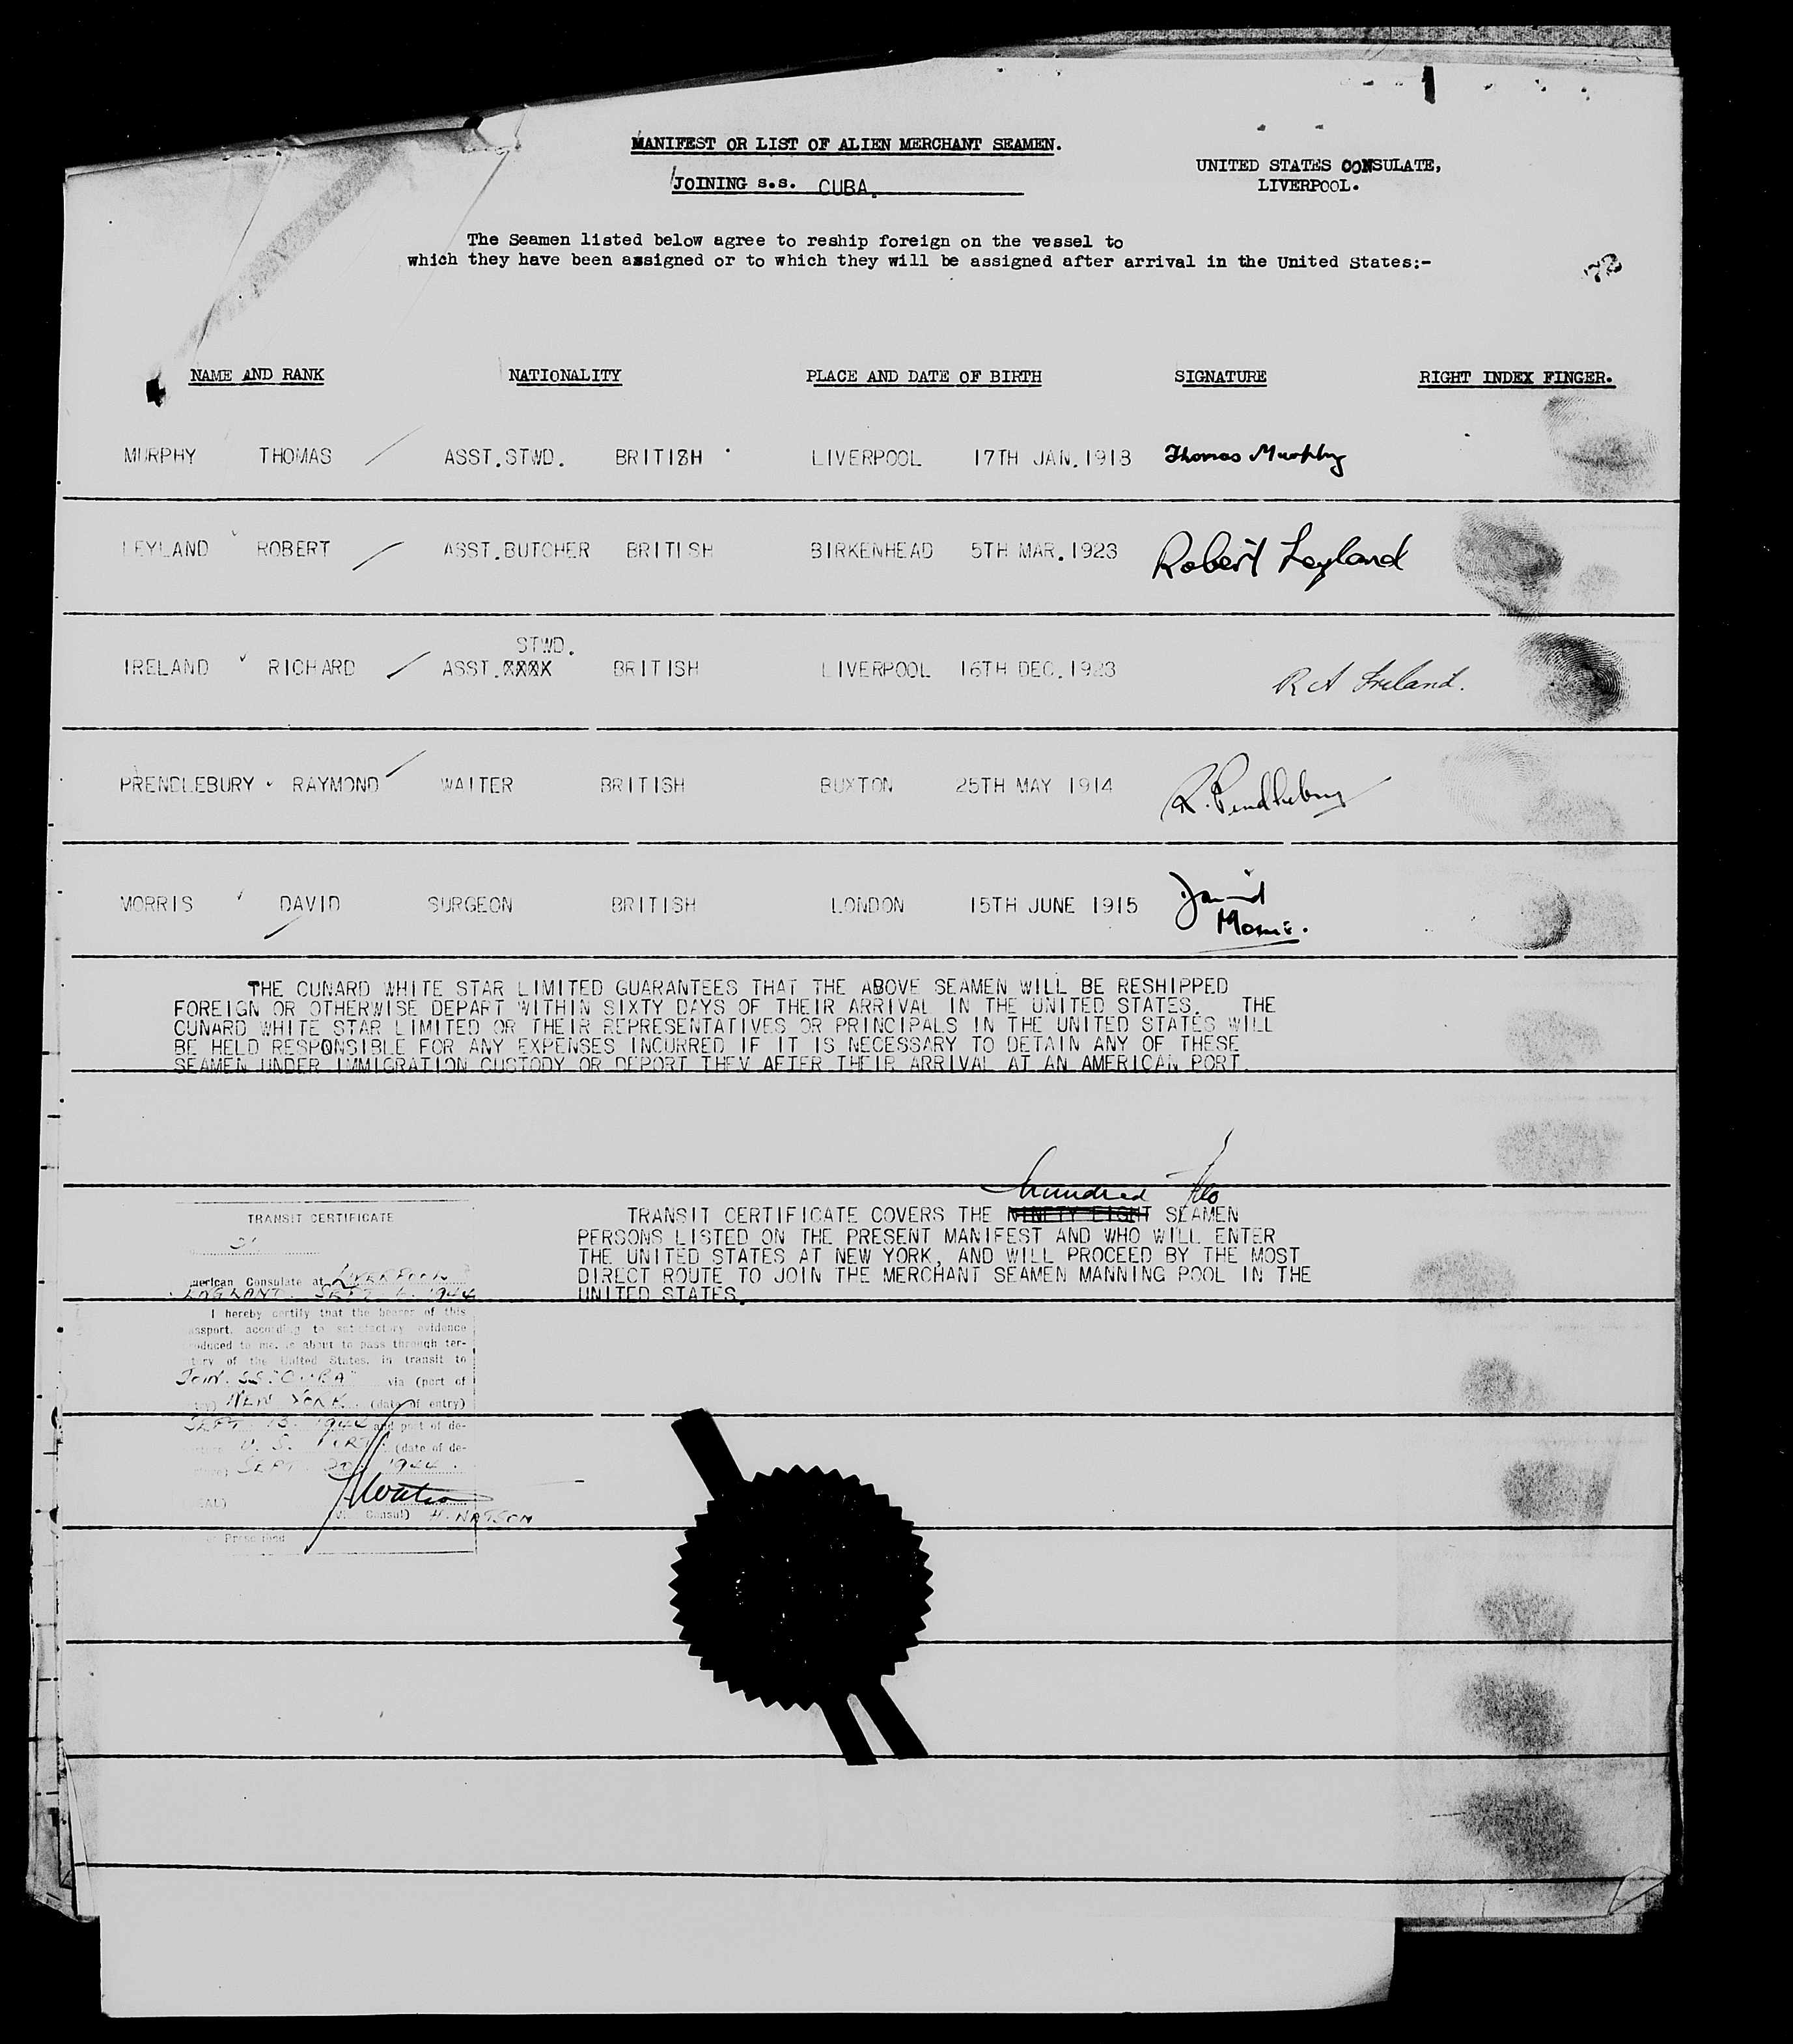 MANIFEST OR LIST OF ALIEN MERCHANT SEAMEN.
JOINING s.s. CUBA.
UNITED STATES CONSULATE,
LIVERPOOL.
The Seamen listed below agree to reship foreign on the vessel to
which they have been assigned or to which they will be assigned after arrival in the United States:-
NAME AND RANK NATIONALITY PLACE AND DATE OF BIRTH SIGNATURE RIGHT INDEX FINGER.
MURPHY THOMAS ASST.STWD. BRITISH LIVERPOOL 17TH JAN.1918 Thomas Murphy
LEYLAND ROBERT ASST.BUTCHER BRITISH BIRKENHEAD 5TH MAR.1923 Robert Leyland
STWD.
IRELAND RICHARD ASST.XXXX BRITISH LIVERPOOL 16TH DEC.1923 R A Ireland.
PRENDLEBURY RAYMOND WAITER BRITISH BUXTON 25TH MAY 1914 R. Pendlebury
MORRIS DAVID SURGEON BRITISH LONDON 15TH JUNE 1915 David
Morris.
THE CUNARD WHITE STAR LIMITED GUARANTEES THAT THE ABOVE SEAMEN WILL BE RESHIPPED
FOREIGN OR OTHERWISE DEPART WITHIN SIXTY DAYS OF THEIR ARRIVAL IN THE UNITED STATES. THE
CUNARD WHITE STAR LIMITED OR THEIR REPRESENTATIVES OR PRINCIPALS IN THE UNITED STATES WILL
BE HELD RESPONSIBLE FOR ANY EXPENSES INCURRED IF IT IS NECESSARY TO DETAIN ANY OF THESE
SEAMEN UNDER IMMIGRATION CUSTODY OR DEPORT THEM AFTER THEIR ARRIVAL AT AN AMERICAN PORT.
hundred two
TRANSIT CERTIFICATE COVERS THE NINETY EIGHT SEAMEN
PERSONS LISTED ON THE PRESENT MANIFEST AND WHO WILL ENTER
THE UNITED STATES AT NEW YORK, AND WILL PROCEED BY THE MOST
DIRECT ROUTE TO JOIN THE MERCHANT SEAMEN MANNING POOL IN THE
UNITED STATES.
TRANSIT CERTIFICATE
merican Consulate at LIVERPOOL
ENGLAND. SEPT 6. 1944
I hereby certify that the bearer of this
assport, according to satisfactory evidence
roduced to me, is about to pass through ter-
tory of the United States, in transit to
JOIN. SS. CUBA via (port of
NEW YORK (date of entry)
SEPT. 13. 1944 and port of de-
U. S. PORT (date of de-
SEPT. 20. 1944.
H Watson
Consul) H. WATSON